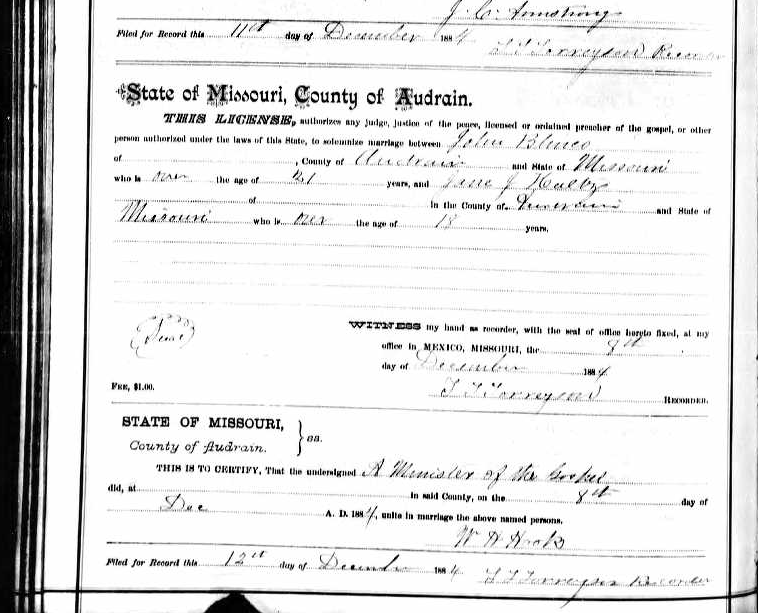 J. C. Armstrong
Filed for Record this 11th day of December 1884
Recorder
State of Missouri, County of Audrain.
THIS LICENSE, authorizes any judge, justice of the peace, licensed or ordained preacher of the gospel, or other
person authorized under the laws of this State, to solemnize marriage between John
of , County of Audrain and State of Missouri
who is over the age of 21 years, and Jane J
of in the County of Audrain and State of
Missouri who is over the age of 18 years,
(Seal)
WITNESS my hand as recorder, with the seal of office hereto fixed, at my
office in MEXICO, MISSOURI, the 8th
day of December 1884
FEE, $1.00. RECORDER.
STATE OF MISSOURI,
County of Audrain. } ss.
THIS IS TO CERTIFY, That the undersigned A Minister of the Gospel
did, at in said County, on the 8th day of
Dec A. D. 1884, unite in marriage the above named persons.
Filed for Record this 12th day of December 1884 Recorder